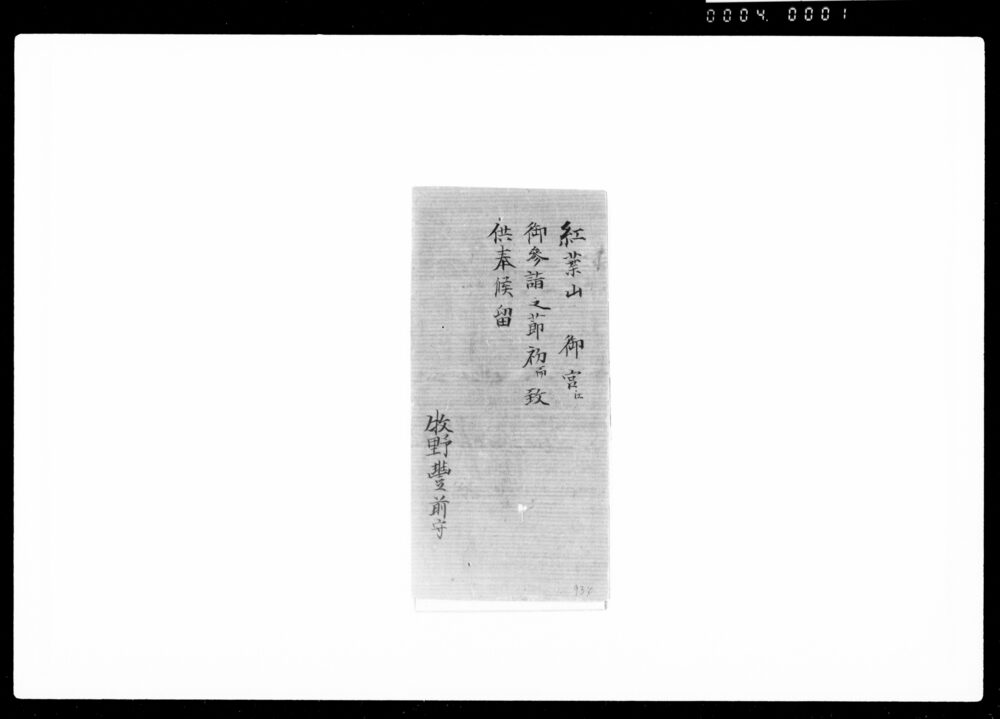 0004. 0001
紅葉山 御宮江
御参詣之節初而致
供奉候留
牧野豊前守
934